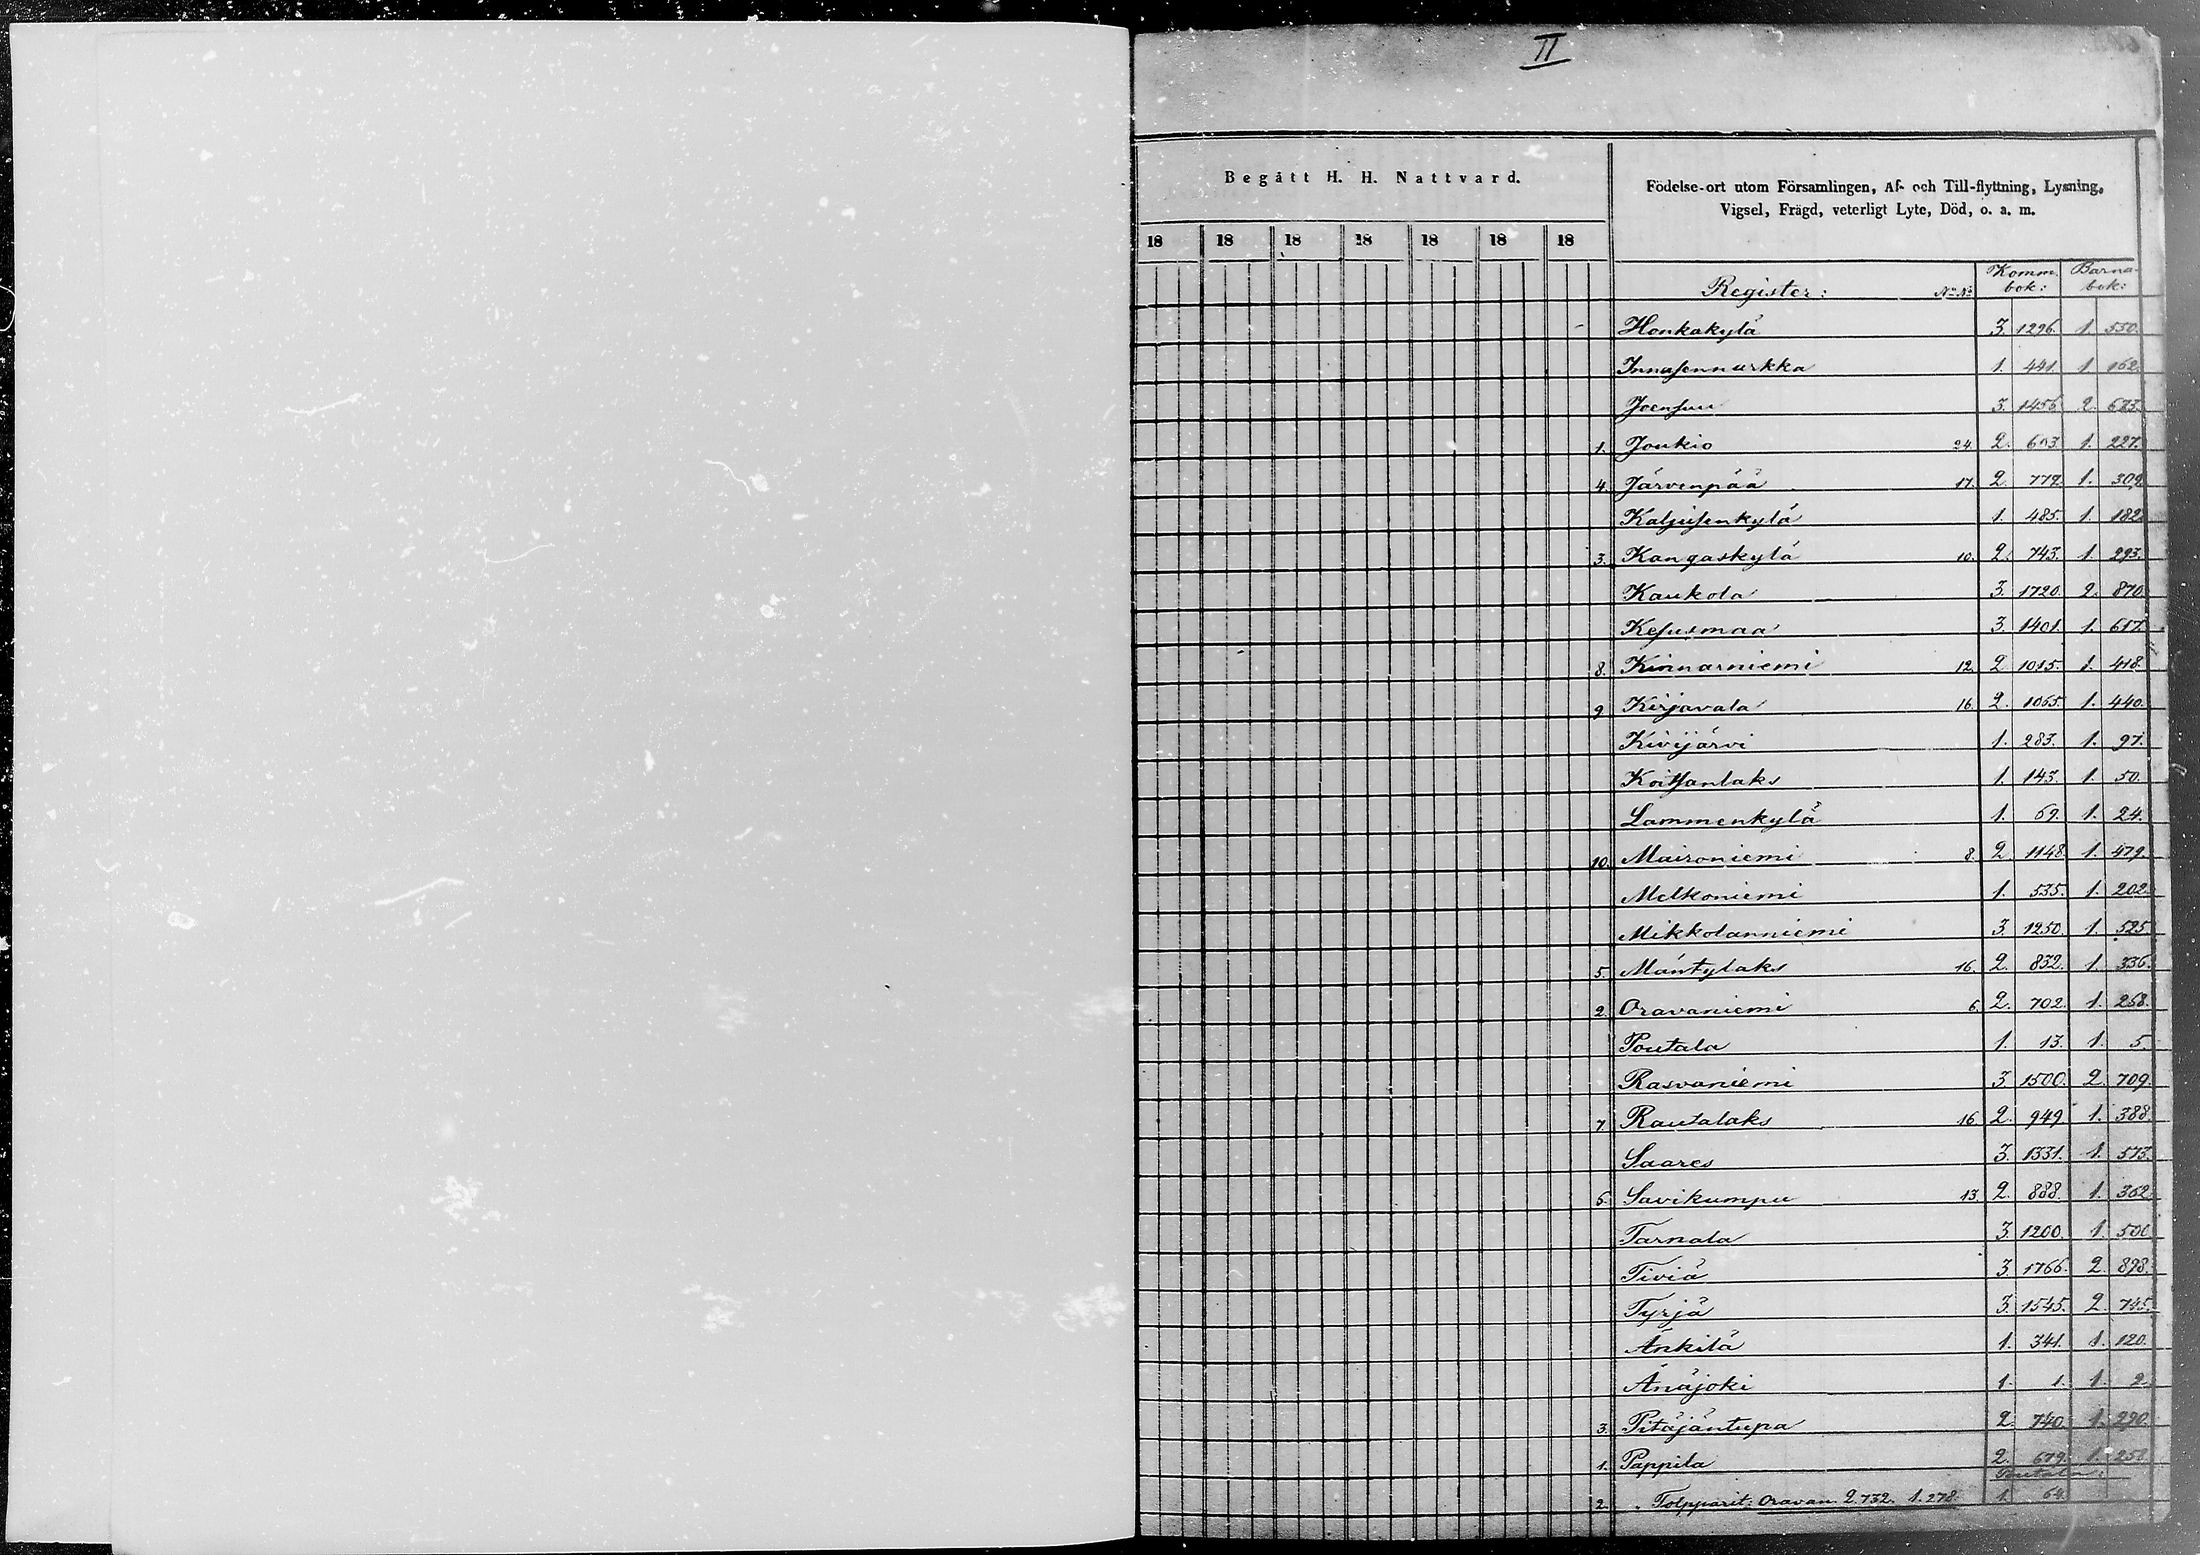 II
Begått H. H. Nattvard.
Födelse-ort utom Församlingen, Af- och Till-flyttning, Lysning,
Vigsel, Frägd, veterligt Lyte, Död, o. a. m.
18 18 18 18 18 18 18
Register: No No Komm. bok: Barna- bok:
Honkakylä 3. 1296. 1. 550.
Innasennurkka 1. 441. 1. 162.
Joensuu 3. 1456. 2. 683.
1. Joukio 24. 2. 603. 1. 227.
4. Järvenpää 17. 2. 772. 1. 309.
Kaljusenkylä 1. 485. 1. 182.
3. Kangaskylä 10. 2. 743. 1. 293.
Kaukola 3. 1720. 2. 870.
Kesusmaa 3. 1401. 1. 617.
8. Kinnarniemi 12. 2. 1015. 1. 418.
9. Kirjavala 16. 2. 1065. 1. 440.
Kivijärvi 1. 283. 1. 97.
Koitsanlaks 1. 143. 1. 50.
Lammenkylä 1. 69. 1. 24.
10. Maironiemi 8. 2. 1148. 1. 479.
Melkoniemi 1. 535. 1. 202.
Mikkolanniemi 3. 1250. 1. 525.
5. Mäntylaks 16. 2. 832. 1. 336.
2. Oravaniemi 6. 2. 702. 1. 268.
Poutala 1. 13. 1. 5.
Rasvaniemi 3. 1500. 2. 709.
7. Rautalaks 16. 2. 949. 1. 388.
Saares 3. 1331. 1. 573.
6. Savikumpu 13. 2. 888. 1. 362.
Tarnala 3. 1200. 1. 500.
Tiviä 3. 1766. 2. 898.
Tyrjä 3. 1545. 2. 745.
Änkilä 1. 341. 1. 120.
Änäjoki 1. 1. 1. 2.
3. Pitäjäntupa 2. 740. 1. 290.
1. Pappila 2. 679. 1. 251.
Poutala:
2. " Tolpparit: Oravan. 2.732. 1.278. 1. 64.